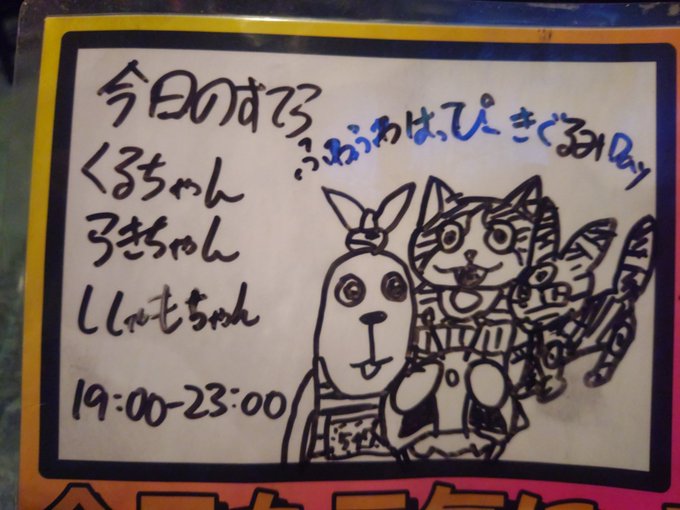 今日のすてら
ふわふわはっぴーきぐるみDay
くるちゃん
らきちゃん
ししゃもちゃん
19:00-23:00
今日も元気に